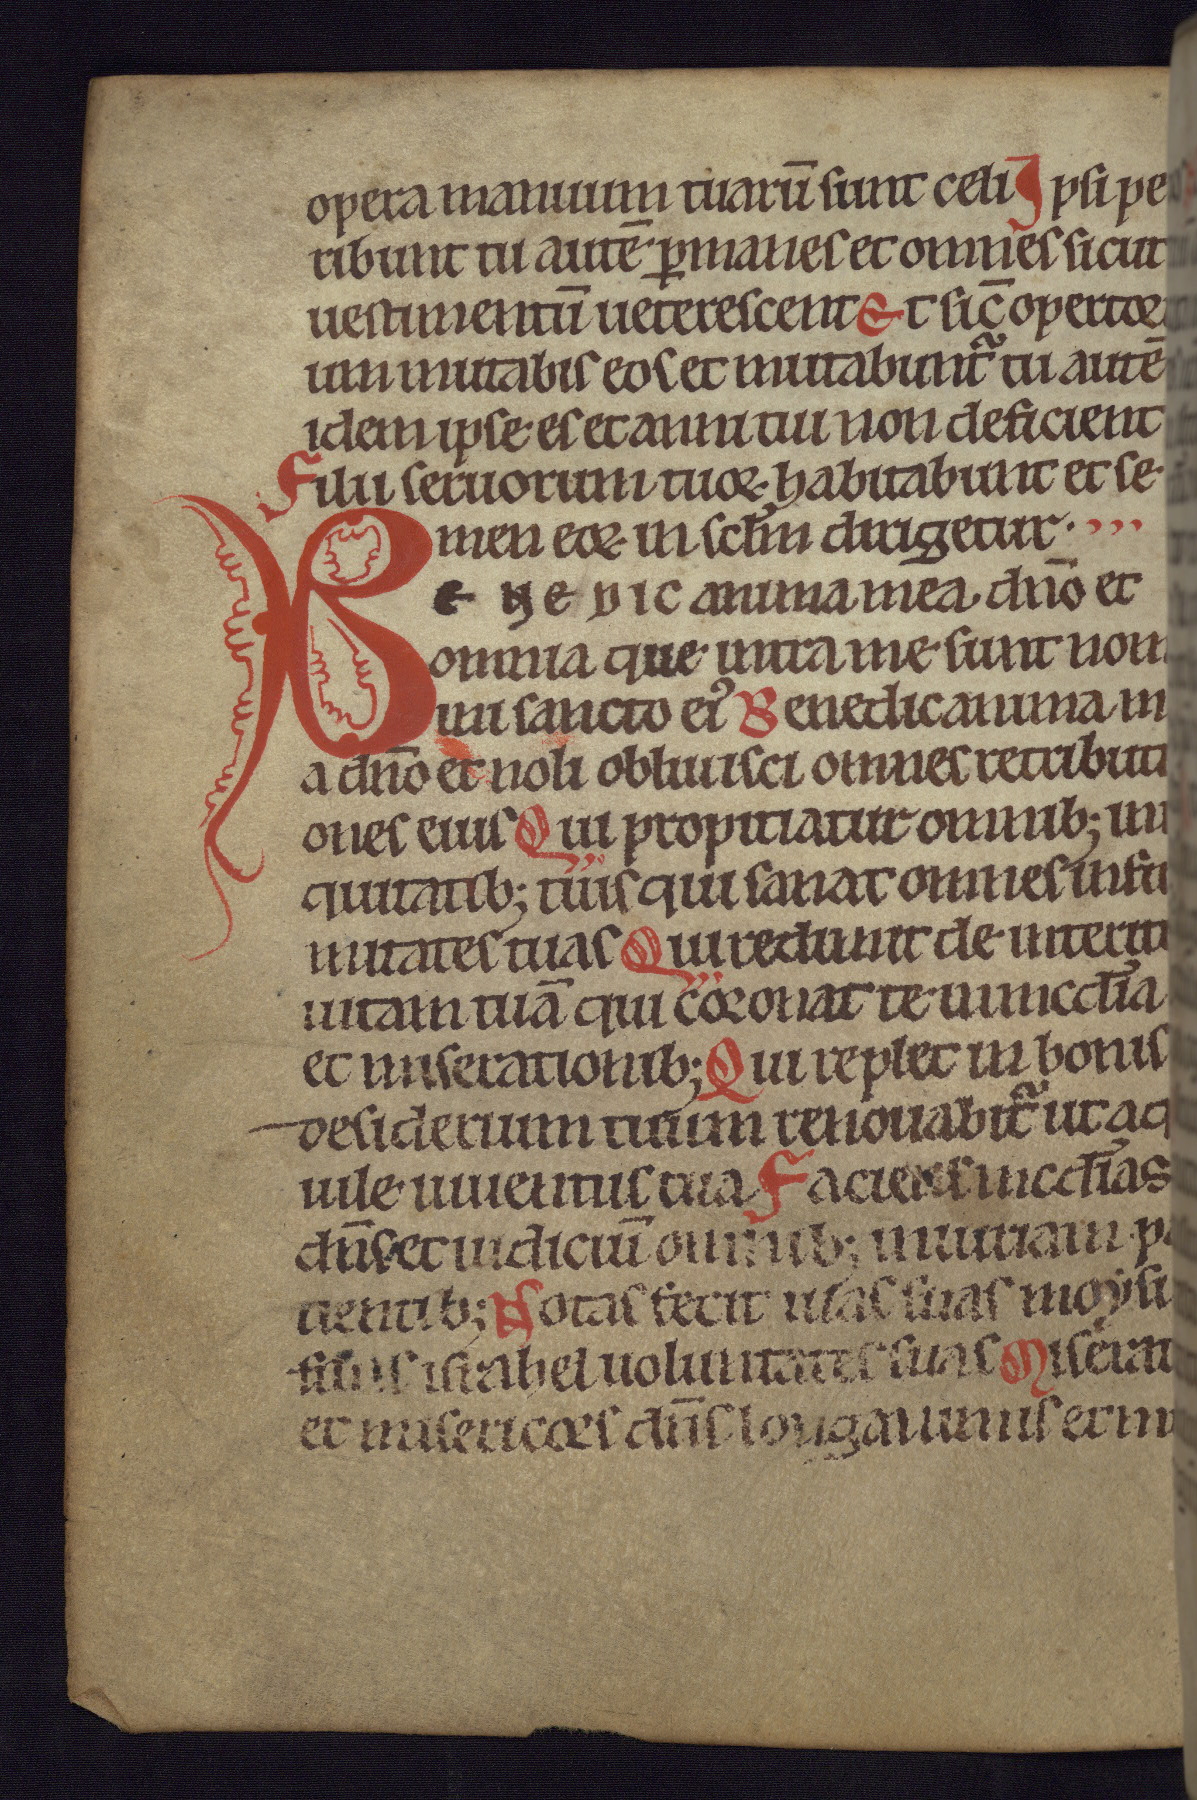 opera manuum tuarū sunt celi Ipsi pe
ribunt tu autē ꝑmanes et omnes sicut
uestimentū ueterescent Et sic̄ opertoꝛi
um mutabis eos et mutabunt᷑ tu autē
idem ipse es et anni tui non deficient
Filii seruorum tuoꝝ habitabunt et se
men eoꝝ in sclm̄ dirigetur.
BENEDIC anima mea dn̄o et
omnia que intra me sunt nom
ini sancto eiꝰ Benedic anima m
a dn̄o et noli obliuisci omnes retributi
ones eius Qui propitiatur omnib; ini
quitatib; tuis qui sanat omnes infir
mitates tuas Qui redimit de interitu
uitam tuā qui coꝛonat te in mccdia
et miserationib; Qui replet in bonis
desiderium tuum renouabit᷑ ut aq
uile iuuentus tua Faciens mccdias
dn̄s et iudiciū omnib; iniuriam pa
tientib; Notas fecit uias suas moysi
filiis israhel uoluntates suas Miserat
et misericoꝛs dn̄s longanimis et mi